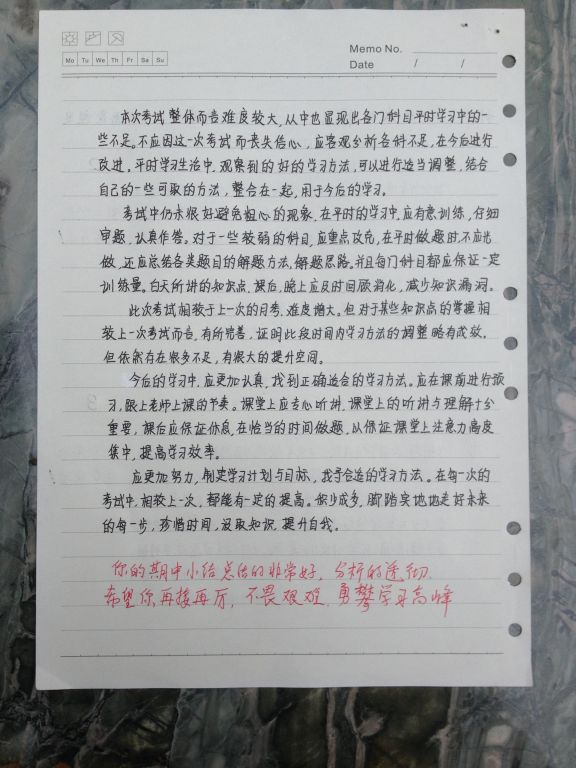 Memo No.
Mo Tu We Th Fr Sa Su
Date / /
本次考试整体而言难度较大,从中也显现出各门科目平时学习中的一
些不足。不应因这一次考试而丧失信心,应客观分析各科不足,在今后进行
改进。平时学习生活中,观察到的好的学习方法,可以进行适当调整,结合
自己的一些可取的方法,整合在一起,用于今后的学习。
考试中仍未很好避免粗心的现象,在平时的学习中,应有意训练,仔细
审题,认真作答。对于一些较弱的科目,应重点攻克,在平时做题时,不应光
做,还应总结各类题目的解题方法,解题思路。并且每门科目都应保证一定
训练量。白天所讲的知识点,课后,晚上应及时回顾消化,减少知识漏洞。
此次考试相较于上一次的月考,难度增大。但对于某些知识点的掌握相
较上一次考试而言,有所完善,证明此段时间内学习方法的调整略有成效。
但依然存在很多不足,有很大的提升空间。
今后的学习中,应更加认真,找到正确适合的学习方法。应在课前进行预
习,跟上老师上课的节奏。课堂上应专心听讲,课堂上的听讲与理解十分
重要,课后应保证休息,在恰当的时间做题,以保证课堂上注意力高度
集中,提高学习效率。
应更加努力,制定学习计划与目标,找寻合适的学习方法。在每一次的
考试中,相较上一次,都能有一定的提高。积少成多,脚踏实地地走好未来
的每一步,珍惜时间,汲取知识,提升自我。
你的期中小结总结的非常好,分析的透彻.
希望你再接再厉,不畏艰难,勇攀学习高峰